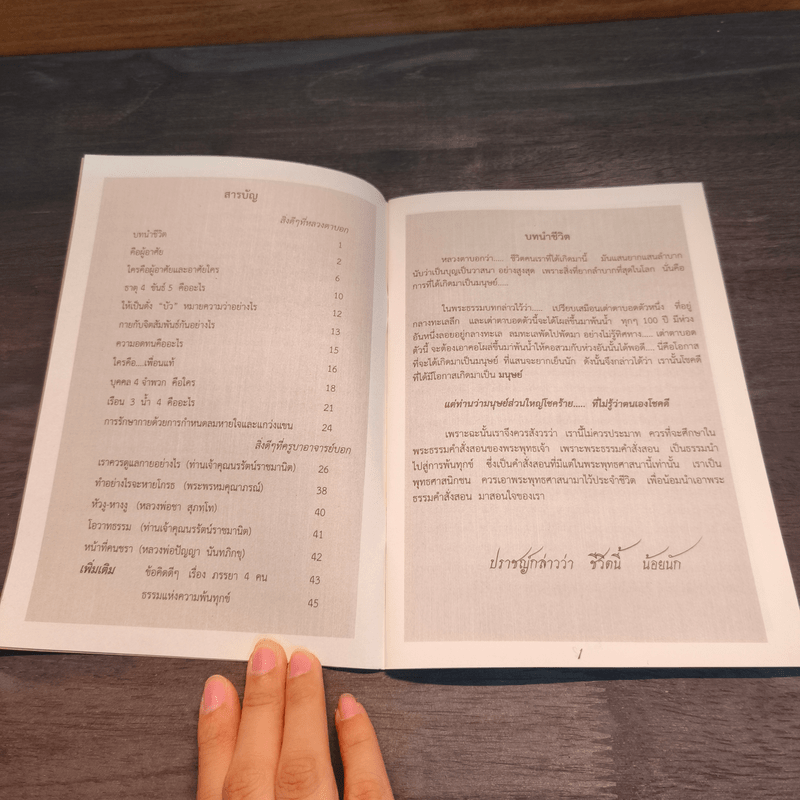 สารบัญ
สิ่งดีๆที่หลวงตาบอก
บทนำชีวิต 1
คือผู้อาศัย 2
ใครคือผู้อาศัยและอาศัยใคร 6
ธาตุ 4 ขันธ์ 5 คืออะไร 10
ให้เป็นดั่ง "บัว" หมายความว่าอย่างไร 12
กายกับจิตสัมพันธ์กันอย่างไร 13
ความอดทนคืออะไร 15
ใครคือ....เพื่อนแท้ 16
บุคคล 4 จำพวก คือใคร 18
เรือน 3 น้ำ 4 คืออะไร 21
การรักษากายด้วยการกำหนดลมหายใจและแกว่งแขน 24
สิ่งดีๆที่ครูบาอาจารย์บอก
เราควรดูแลกายอย่างไร (ท่านเจ้าคุณนรรัตน์ราชมานิต) 26
ทำอย่างไรจะหายโกรธ (พระพรหมคุณาภรณ์) 38
หัวงู-หางงู (หลวงพ่อชา สุภทฺโท) 40
โอวาทธรรม (ท่านเจ้าคุณนรรัตน์ราชมานิต) 41
หน้าที่คนชรา (หลวงพ่อปัญญา นันทภิกขุ) 42
เพิ่มเติม ข้อคิดดีๆ เรื่อง ภรรยา 4 คน 43
ธรรมแห่งความพ้นทุกข์ 45
บทนำชีวิต
หลวงตาบอกว่า..... ชีวิตคนเราที่ได้เกิดมานี้ มันแสนยากแสนลำบาก
นับว่าเป็นบุญเป็นวาสนา อย่างสูงสุด เพราะสิ่งที่ยากลำบากที่สุดในโลก นั่นคือ
การที่ได้เกิดมาเป็นมนุษย์.....
ในพระธรรมบทกล่าวไว้ว่า..... เปรียบเสมือนเต่าตาบอดตัวหนึ่ง ที่อยู่
กลางทะเลลึก และเต่าตาบอดตัวนี้จะได้โผล่ขึ้นมาพ้นน้ำ ทุกๆ 100 ปี มีห่วง
อันหนึ่งลอยอยู่กลางทะเล ลมทะเลพัดไปพัดมา อย่างไม่รู้ทิศทาง.... เต่าตาบอด
ตัวนี้ จะต้องเอาคอโผล่ขึ้นมาพ้นน้ำให้คอสวมกับห่วงอันนั้นได้พอดี.... นี่คือโอกาส
ที่จะได้เกิดมาเป็นมนุษย์ ที่แสนจะยากเย็นนัก ดังนั้นจึงกล่าวได้ว่า เรานั้นโชคดี
ที่ได้มีโอกาสเกิดมาเป็น มนุษย์
แต่ท่านว่ามนุษย์ส่วนใหญ่โชคร้าย..... ที่ไม่รู้ว่าตนเองโชคดี
เพราะฉะนั้นเราจึงควรสังวรว่า เรานี้ไม่ควรประมาท ควรที่จะศึกษาใน
พระธรรมคำสั่งสอนของพระพุทธเจ้า เพราะพระธรรมคำสั่งสอน เป็นธรรมนำ
ไปสู่การพ้นทุกข์ ซึ่งเป็นคำสั่งสอนที่มีแต่ในพระพุทธศาสนานี้เท่านั้น เราเป็น
พุทธศาสนิกชน ควรเอาพระพุทธศาสนามาไว้ประจำชีวิต เพื่อน้อมนำเอาพระ
ธรรมคำสั่งสอน มาสอนใจของเรา
ปราชญ์กล่าวว่า ชีวิตนี้ น้อยนัก
1